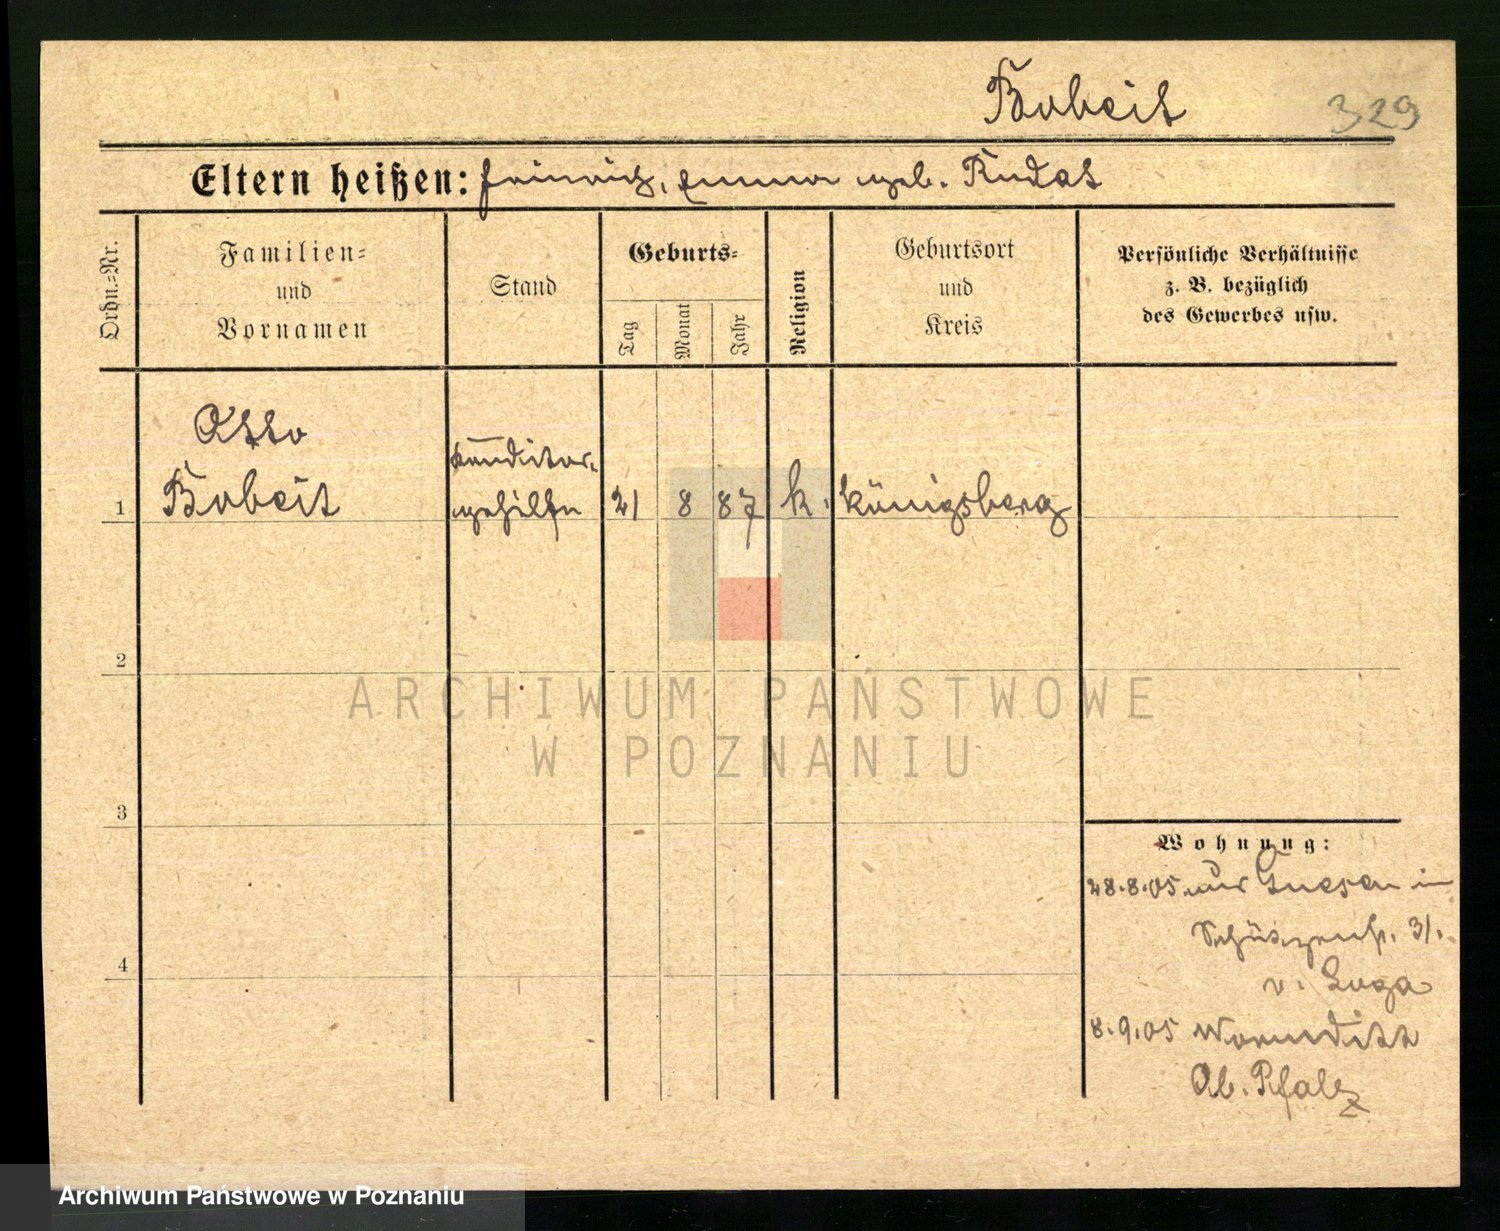 Bobeit 329
Eltern heißen: Heinrich, Emma geb. Rudat
Ordn.=Nr.
Familien=
und
Vornamen
Stand
Geburts=
Tag
Monat
Jahr
Religion
Geburtsort
und
Kreis
Persönliche Verhältnisse
z. B. bezüglich
des Gewerbes usw.
Otto
Bobeit
Konditor-
gehilfe
1 21 8 87 k. Königsberg
2
3
4
Wohnung:
28.8.05 aus Gnesen in
Schützenstr. 31.
v. Loga
8.9.05 Wormditt
Ob. Pfalz
ARCHIWUM PAŃSTWOWE
W POZNANIU
Archiwum Państwowe w Poznaniu